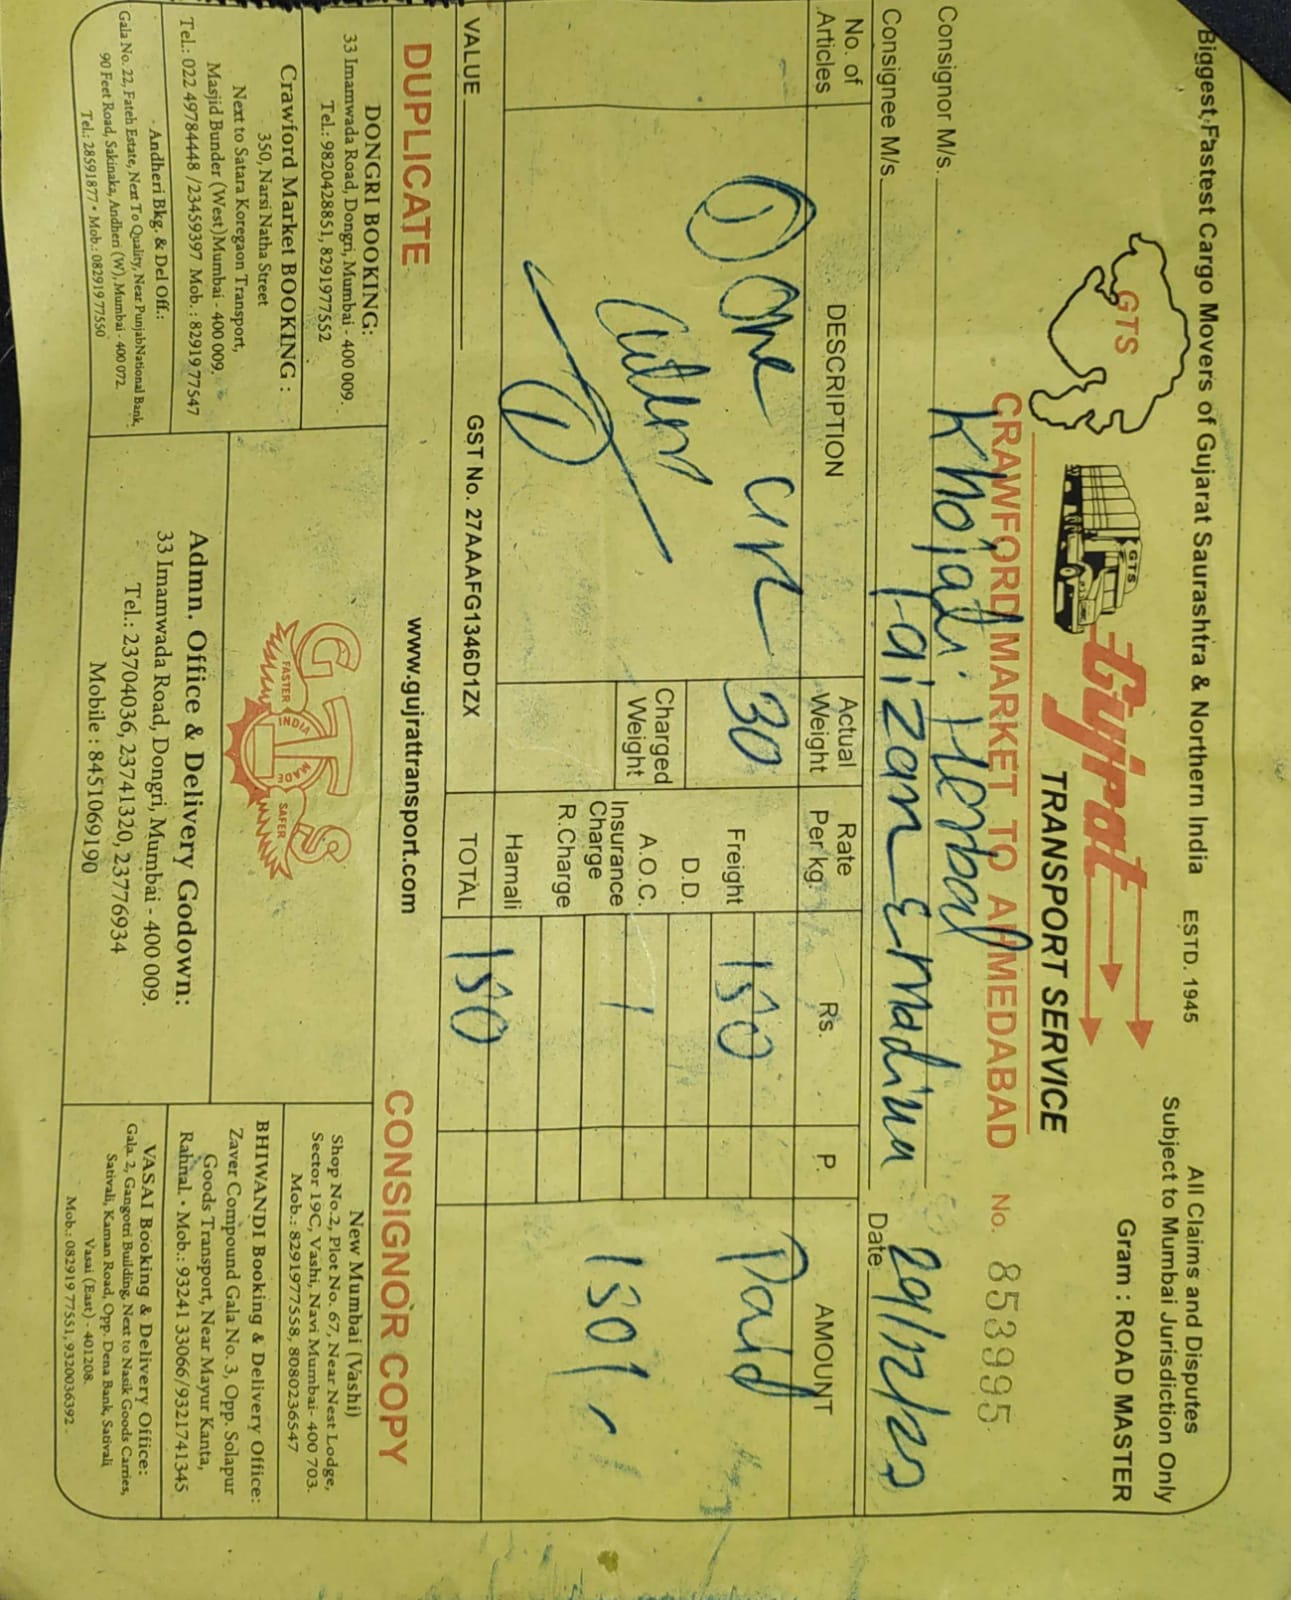 Biggest, Fastest Cargo Movers of Gujarat Saurashtra & Northern India ESTD. 1945
All Claims and Disputes
Subject to Mumbai Jurisdiction Only
Gram : ROAD MASTER
GTS
GTS
Gujrat
TRANSPORT SERVICE
CRAWFORD MARKET TO AHMEDABAD
No. 853995
Consignor M/s. Khojati Herbal
Consignee M/s. Faizan Emadinu Date 29/12/22
No. of Articles
DESCRIPTION
Actual Weight
Rate Per kg.
Rs.
P.
AMOUNT
① One
30
Freight 150
Paid
D.D.
Charged Weight
A.O.C.
Insurance Charge
150/-
R.Charge
①
Hamali
VALUE
GST No. 27AAAFG1346D1ZX
TOTAL 150
DUPLICATE
www.gujrattransport.com
CONSIGNOR COPY
DONGRI BOOKING:
33 Imamwada Road, Dongri, Mumbai - 400 009.
Tel.: 9820428851, 8291977552
Crawford Market BOOKING :
350, Narsi Natha Street
Next to Satara Koregaon Transport,
Masjid Bunder (West)Mumbai - 400 009.
Tel.: 022 49784448 /23459397 Mob. : 82919 77547
Andheri Bkg. & Del Off.:
Gala No. 22, Fateh Estate, Next To Quality, Near PunjabNational Bank,
90 Feet Road, Sakinaka, Andheri (W), Mumbai - 400 072.
Tel.: 28591877 • Mob.: 082919 77550
GTS
FASTER
INDIA
SAFER
Admn. Office & Delivery Godown:
33 Imamwada Road, Dongri, Mumbai - 400 009.
Tel.: 23704036, 23741320, 23776934
Mobile : 8451069190
New Mumbai (Vashi)
Shop No.2, Plot No. 67, Near Nest Lodge,
Sector 19C, Vashi, Navi Mumbai- 400 703.
Mob.: 8291977558, 8080236547
BHIWANDI Booking & Delivery Office:
Zaver Compound Gala No. 3, Opp. Solapur
Goods Transport, Near Mayur Kanta,
Rahnal. • Mob.: 93241 33066/9321741345
VASAI Booking & Delivery Office:
Gala. 2, Gangotri Building, Next to Nasik Goods Carries,
Sativali, Kaman Road, Opp. Dena Bank, Sativali,
Vasai (East) - 401208.
Mob.: 082919 77551, 9320036392.